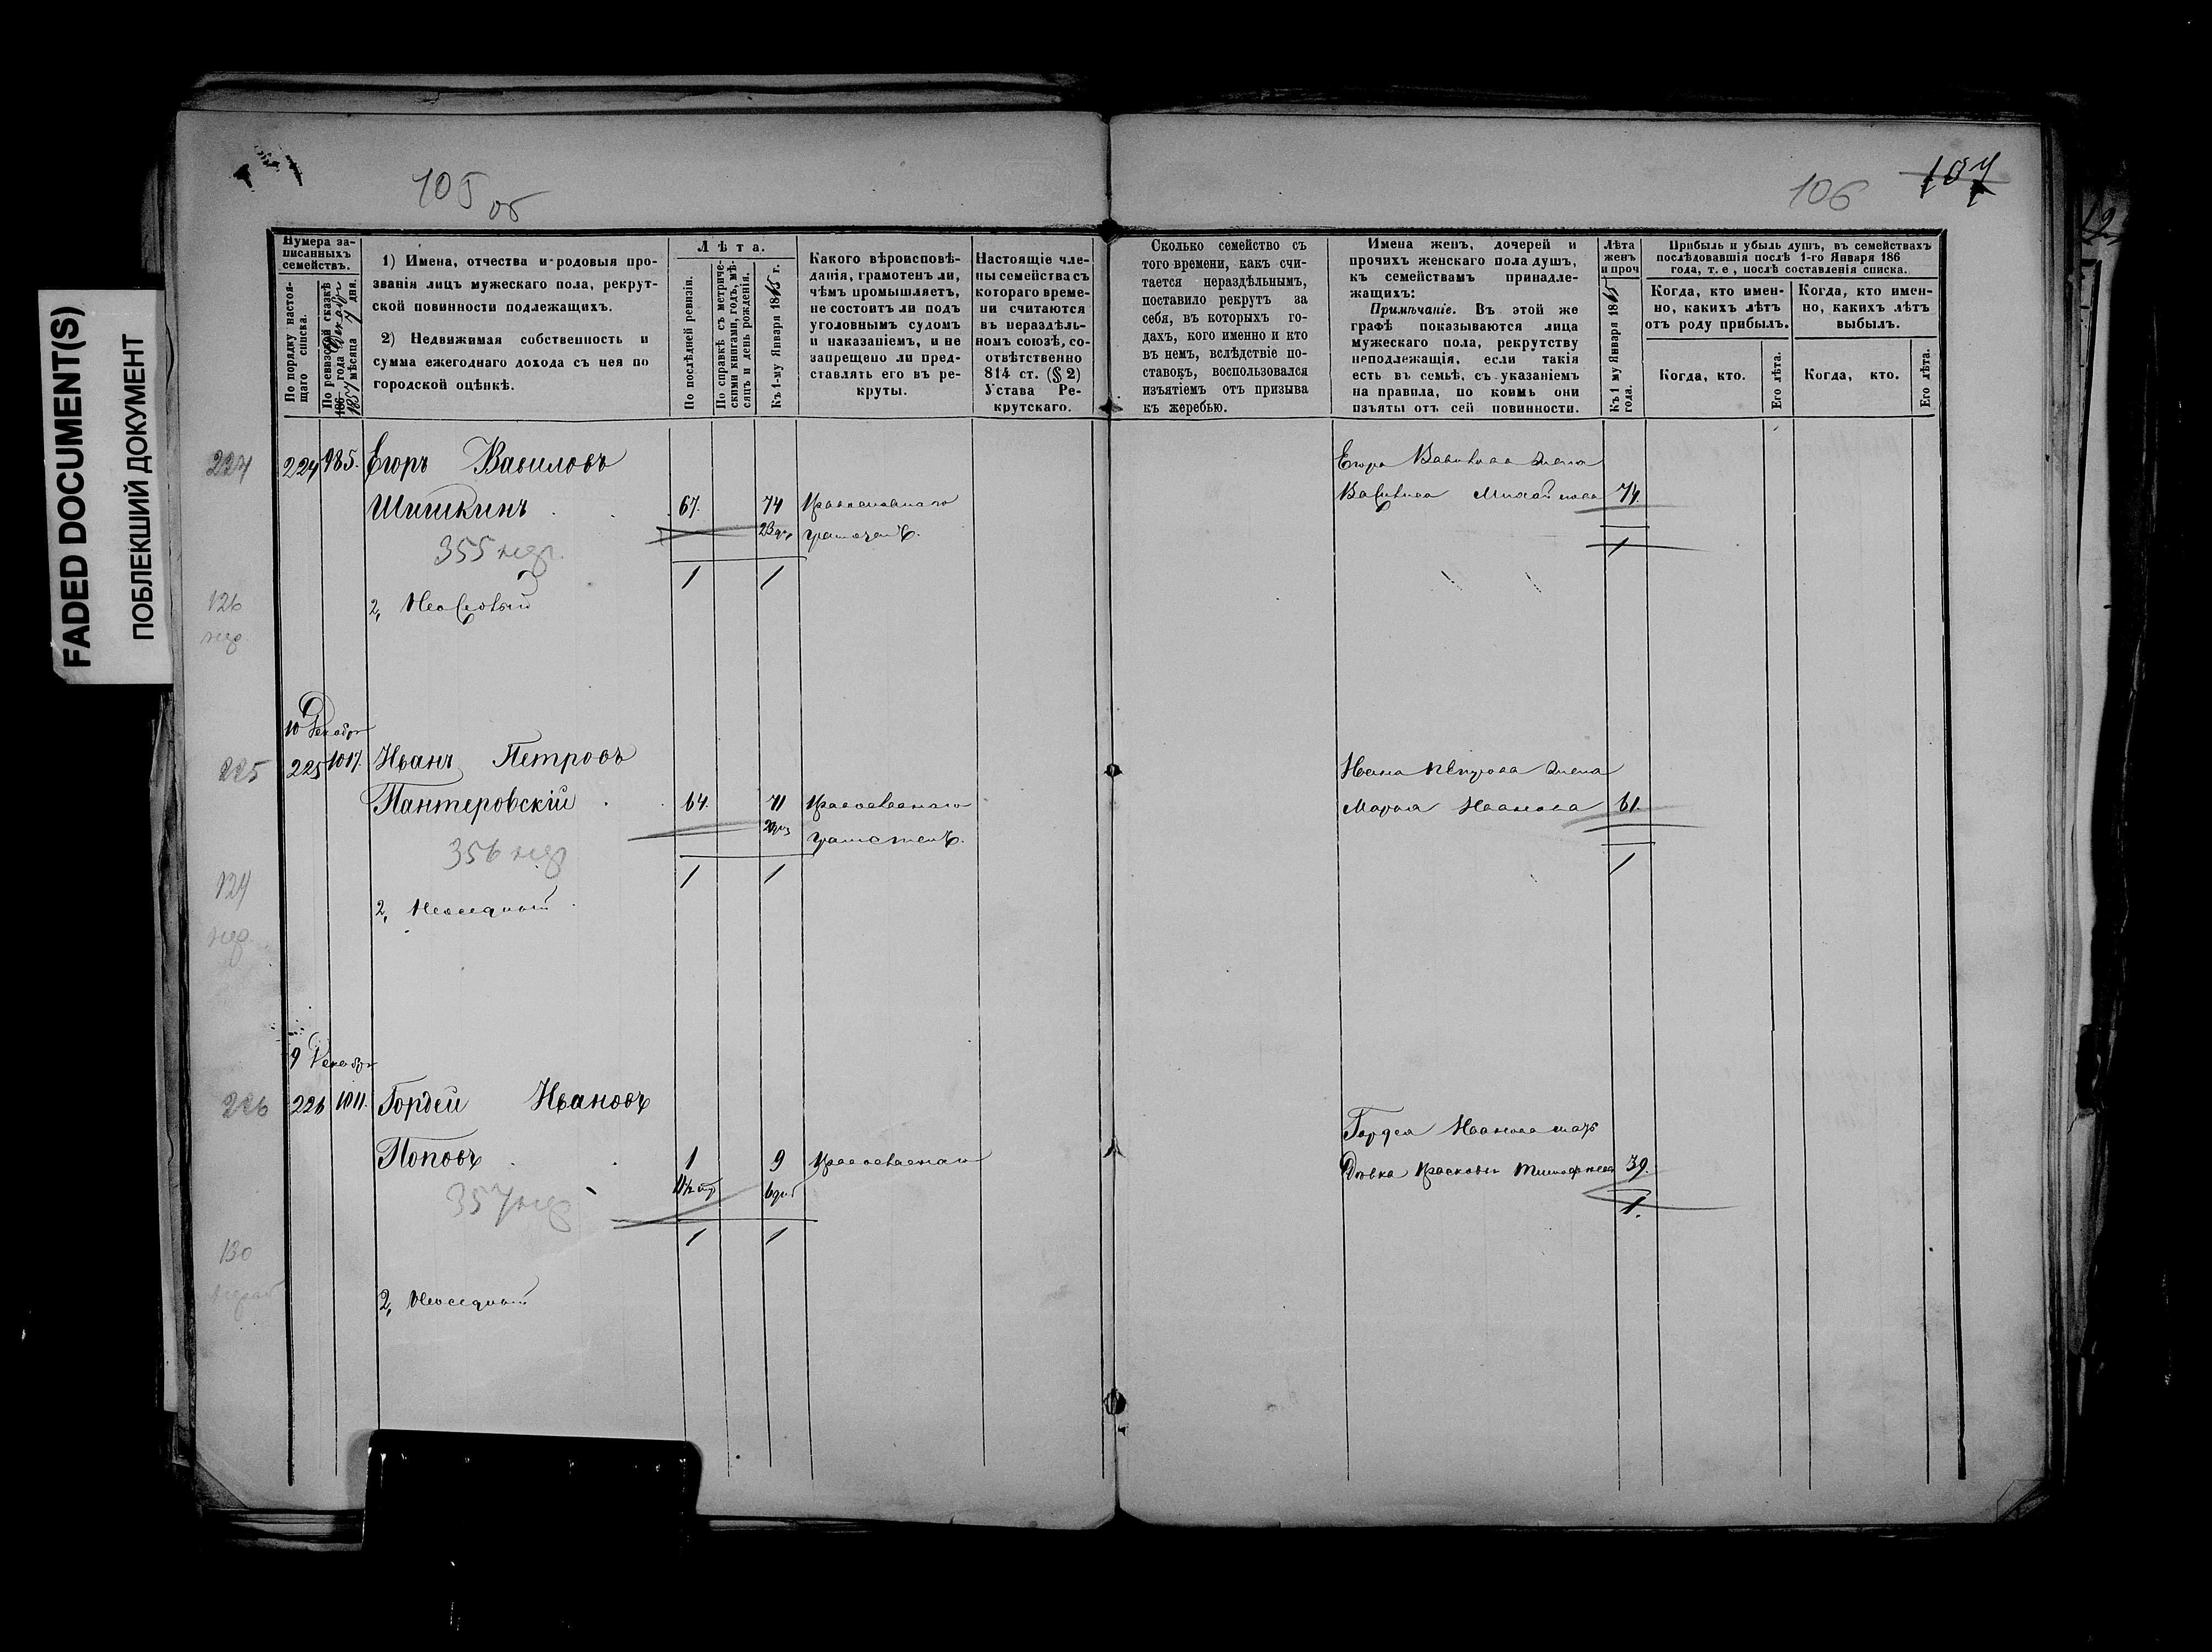 FADED DOCUMENT(S)
ПОБЛЕКШИЙ ДОКУМЕНТ
105 об
106
107
Нумера за-
писанныхъ
семействъ.
По порядку настоя-
щаго списка.
По ревизской сказкѣ
186 года Декабря
1857 мѣсяца 7 дня.
1) Имена, отчества и родовыя про-
званія лицъ мужескаго пола, рекрут-
ской повинности подлежащихъ.
2) Недвижимая собственность и
сумма ежегоднаго дохода съ нея по
городской оцѣнкѣ.
Лѣта.
По послѣдней ревизіи.
По справкѣ съ метриче-
скими книгами, годъ, мѣ-
сяцъ и день рожденія.
Къ 1-му Января 1865 г.
Какого вѣроисповѣ-
данія, грамотенъ ли,
чѣмъ промышляетъ,
не состоитъ ли подъ
уголовнымъ судомъ
и наказаніемъ, и не
запрещено ли пред-
ставлять его въ ре-
круты.
Настоящіе чле-
ны семейства съ
котораго време-
ни считаются
въ нераздѣль-
номъ союзѣ, со-
отвѣтственно
814 ст. (§ 2)
Устава Ре-
крутскаго.
Сколько семейство съ
того времени, какъ счи-
тается нераздѣльнымъ,
поставило рекрутъ за
себя, въ которыхъ го-
дахъ, кого именно и кто
въ немъ, вслѣдствіе по-
ставокъ, воспользовался
изъятіемъ отъ призыва
къ жеребью.
Имена женъ, дочерей и
прочихъ женскаго пола душъ,
къ семействамъ принадле-
жащихъ:
Примѣчаніе. Въ этой же
графѣ показываются лица
мужескаго пола, рекрутству
неподлежащія, если такія
есть въ семьѣ, съ указаніемъ
на правила, по коимъ они
изъяты отъ сей повинности.
Лѣта
женъ
и проч
Къ 1 му Января 1865
года.
Прибыль и убыль душъ, въ семействахъ
послѣдовавшія послѣ 1-го Января 186
года, т. е., послѣ составленія списка.
Когда, кто имен-
но, какихъ лѣтъ
отъ роду прибылъ.
Когда, кто имен-
но, какихъ лѣтъ
выбылъ.
Когда, кто.
Его лѣта.
Когда, кто.
Его лѣта.
224 224 985. Егоръ Вавиловъ
Шишкинъ 67. 74 Православнаго
грамотенъ.
355
1 1
126
2, Неоседлый
Егора Вавилова жена
Михайлова 74.
1
10 Декабря
225 225 1017. Иванъ Петровъ
Пантеровскій 64. 71 Православнаго
грамотенъ.
356
1 1
2, Неоседлый
Ивана Петрова жена
Марья Иванова 61.
1
9 Декабря
226 226 1011. Гордей Ивановъ
Поповъ 1 9 Православнаго
357
1 1
130
2, Неоседлый
Гордея Иванова мать
Дѣвка Прасковья Тимофеева 39.
1.